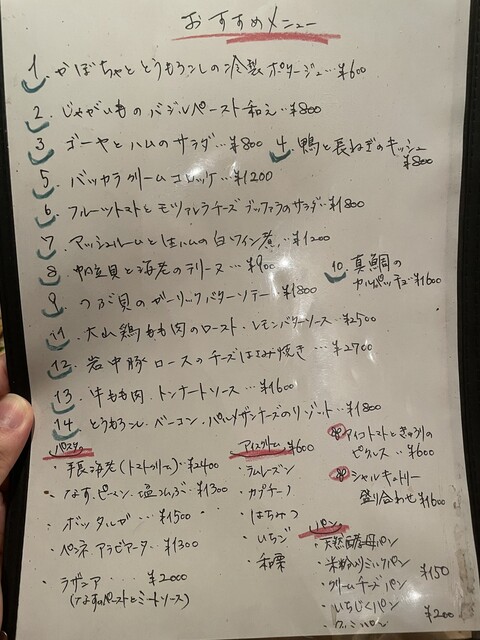 おすすめメニュー
1. かぼちゃととうもろこしの冷製ポタージュ…¥600
2. じゃがいもの バジルペースト和え…¥800
3 ゴーヤとハムのサラダ…¥800
4. 鴨と長ねぎのキッシュ ¥800
5. バッカラクリームコロッケ…¥1200
6. フルーツトマトと モッツァレラチーズ ブッファラのサラダ…¥1800
7. マッシュルームと生ハムの白ワイン煮…¥1200
8. 帆立貝と海老のテリーヌ…¥900
9. つぶ貝のガーリックバターソテー…¥1800
10. 真鯛の
カルパッチョ…¥1600
11. 大山鶏もも肉のロースト・レモンバターソース…¥2500
12. 岩中豚 ロースのチーズはさみ焼き…¥2700
13. 牛もも肉・トンナートソース…¥1600
14. とうもろこし・ベーコン・パルメザンチーズのリゾット…¥1800
パスタ
・手長海老(トマトクリーム)…¥2400
・なす・ピーマン・塩こんぶ…¥1300
・ボッタルガ…¥1500
・ペンネ アラビアータ…¥1300
・ラザニア…¥2000
(なすのペーストとミートソース)
アイスクリーム ¥600
・ラムレーズン
・カプチーノ
・はちみつ
・いちご
・和栗
アイコトマトときゅうりの
ピクルス…¥600
シャルキュトリー
盛り合わせ ¥1600
パン
・天然酵母パン
・米粉入りミルクパン
・クリームチーズパン ¥150
・いちじくパン
¥200